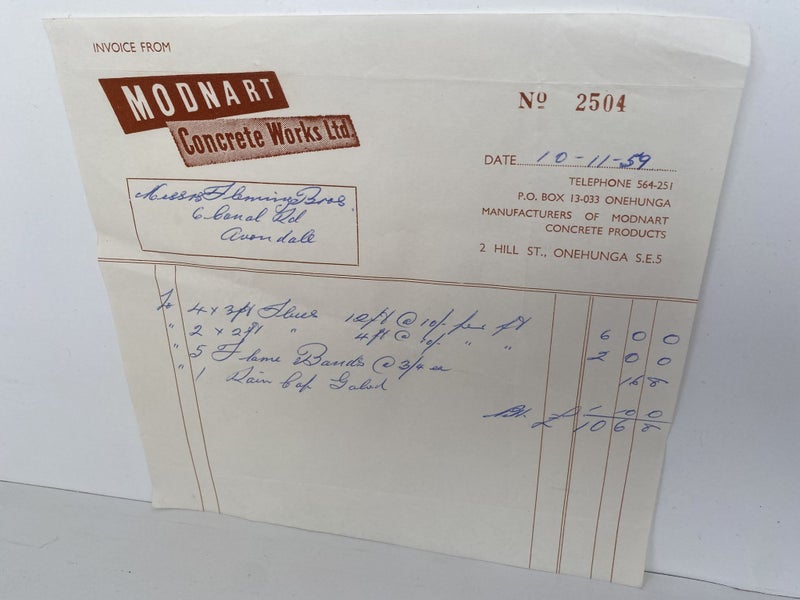 INVOICE FROM
MODNART
Concrete Works Ltd.
No 2504
DATE 10-11-59
TELEPHONE 564-251
P.O. BOX 13-033 ONEHUNGA
MANUFACTURERS OF MODNART
CONCRETE PRODUCTS
2 HILL ST., ONEHUNGA S.E.5
Messrs Fleming Bros.
6 Canal Rd
Avondale
To 4 x 3ft Flues 12ft @ 10/- per ft 6 0 0
" 2 x 2ft " 4ft @ 10/- " " 2 0 0
" 5 Flame Bands @ 3/4 ea 16 8
" 1 Rain Cap Galvd 1 10 0
£ 10 6 8